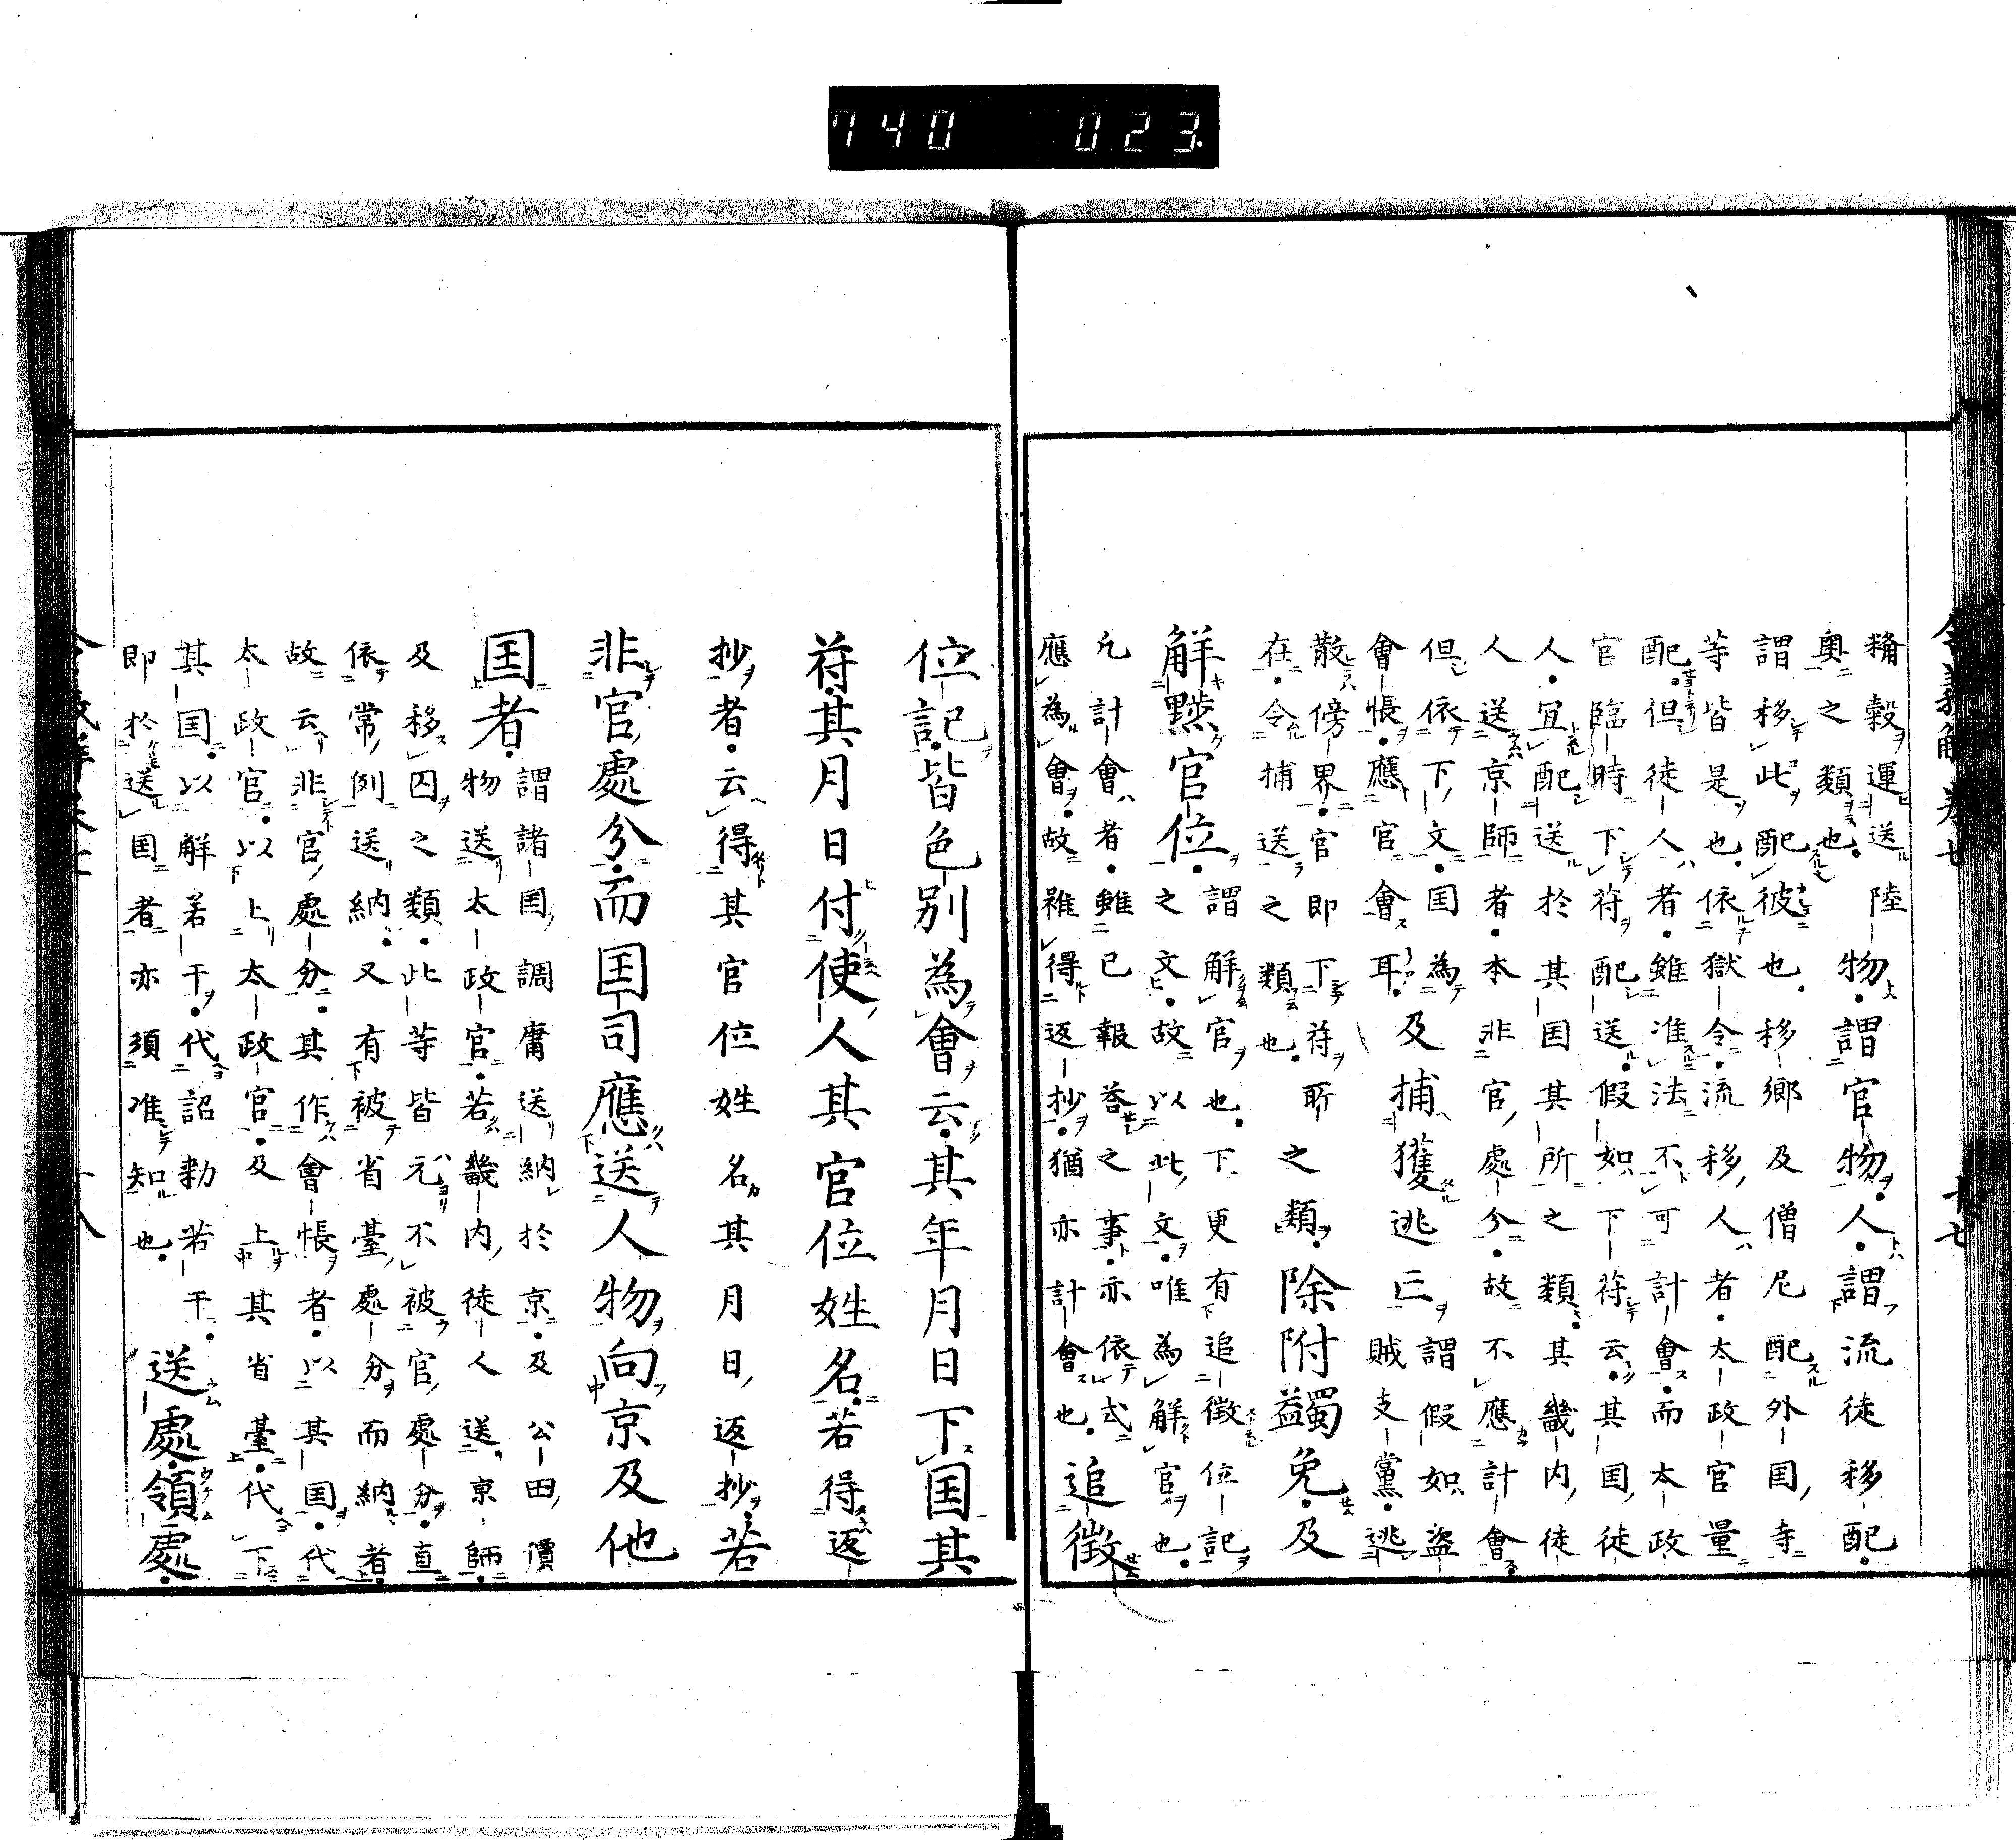 740 023
糒穀運送陸
奥之類也。物。謂官物。人。謂流徒移配。
謂移此配彼也。移郷及僧尼配外国寺
等皆是也。依獄令。流移人者。太政官量
配。但徒人者。雖准法不可計會。而太政
官臨時下符配送。假如下符云。其国徒
人。宜配送於其国其所之類。其畿内徒
人送京師者。本非官處分。故不應計會
但依下文。国為
會帳。應官會耳。及捕獲逃亡謂假如盗
賊支黨。逃
散傍界。官即下符所
在。令捕送之類也。之類。除附蠲免。及
解黜官位。謂解官也。下更有追徴位記
之文。故以此文。唯為解官也。
凡計會者。雖已報答之事。亦依式
應為會。故雖得返抄。猶亦計會也。追徴
位記。皆色別為會云。其年月日下国其
符。其月日付使人其官位姓名。若得返
抄者。云得其官位姓名其月日返抄。若
非官處分。而国司應送人物向京及他
国者。謂諸国調庸送納於京。及公田價
物送太政官。若畿内徒人送京師。
及移囚之類。此等皆元不被官處分。直
依常例送納。又有被省臺處分而納者。
故云非官處分。其作會帳者。以其国。代
太政官。以上太政官。及上其省臺。代下
其国。以解若干。代詔勅若干。
即於送国者亦須准知也。送處領處。